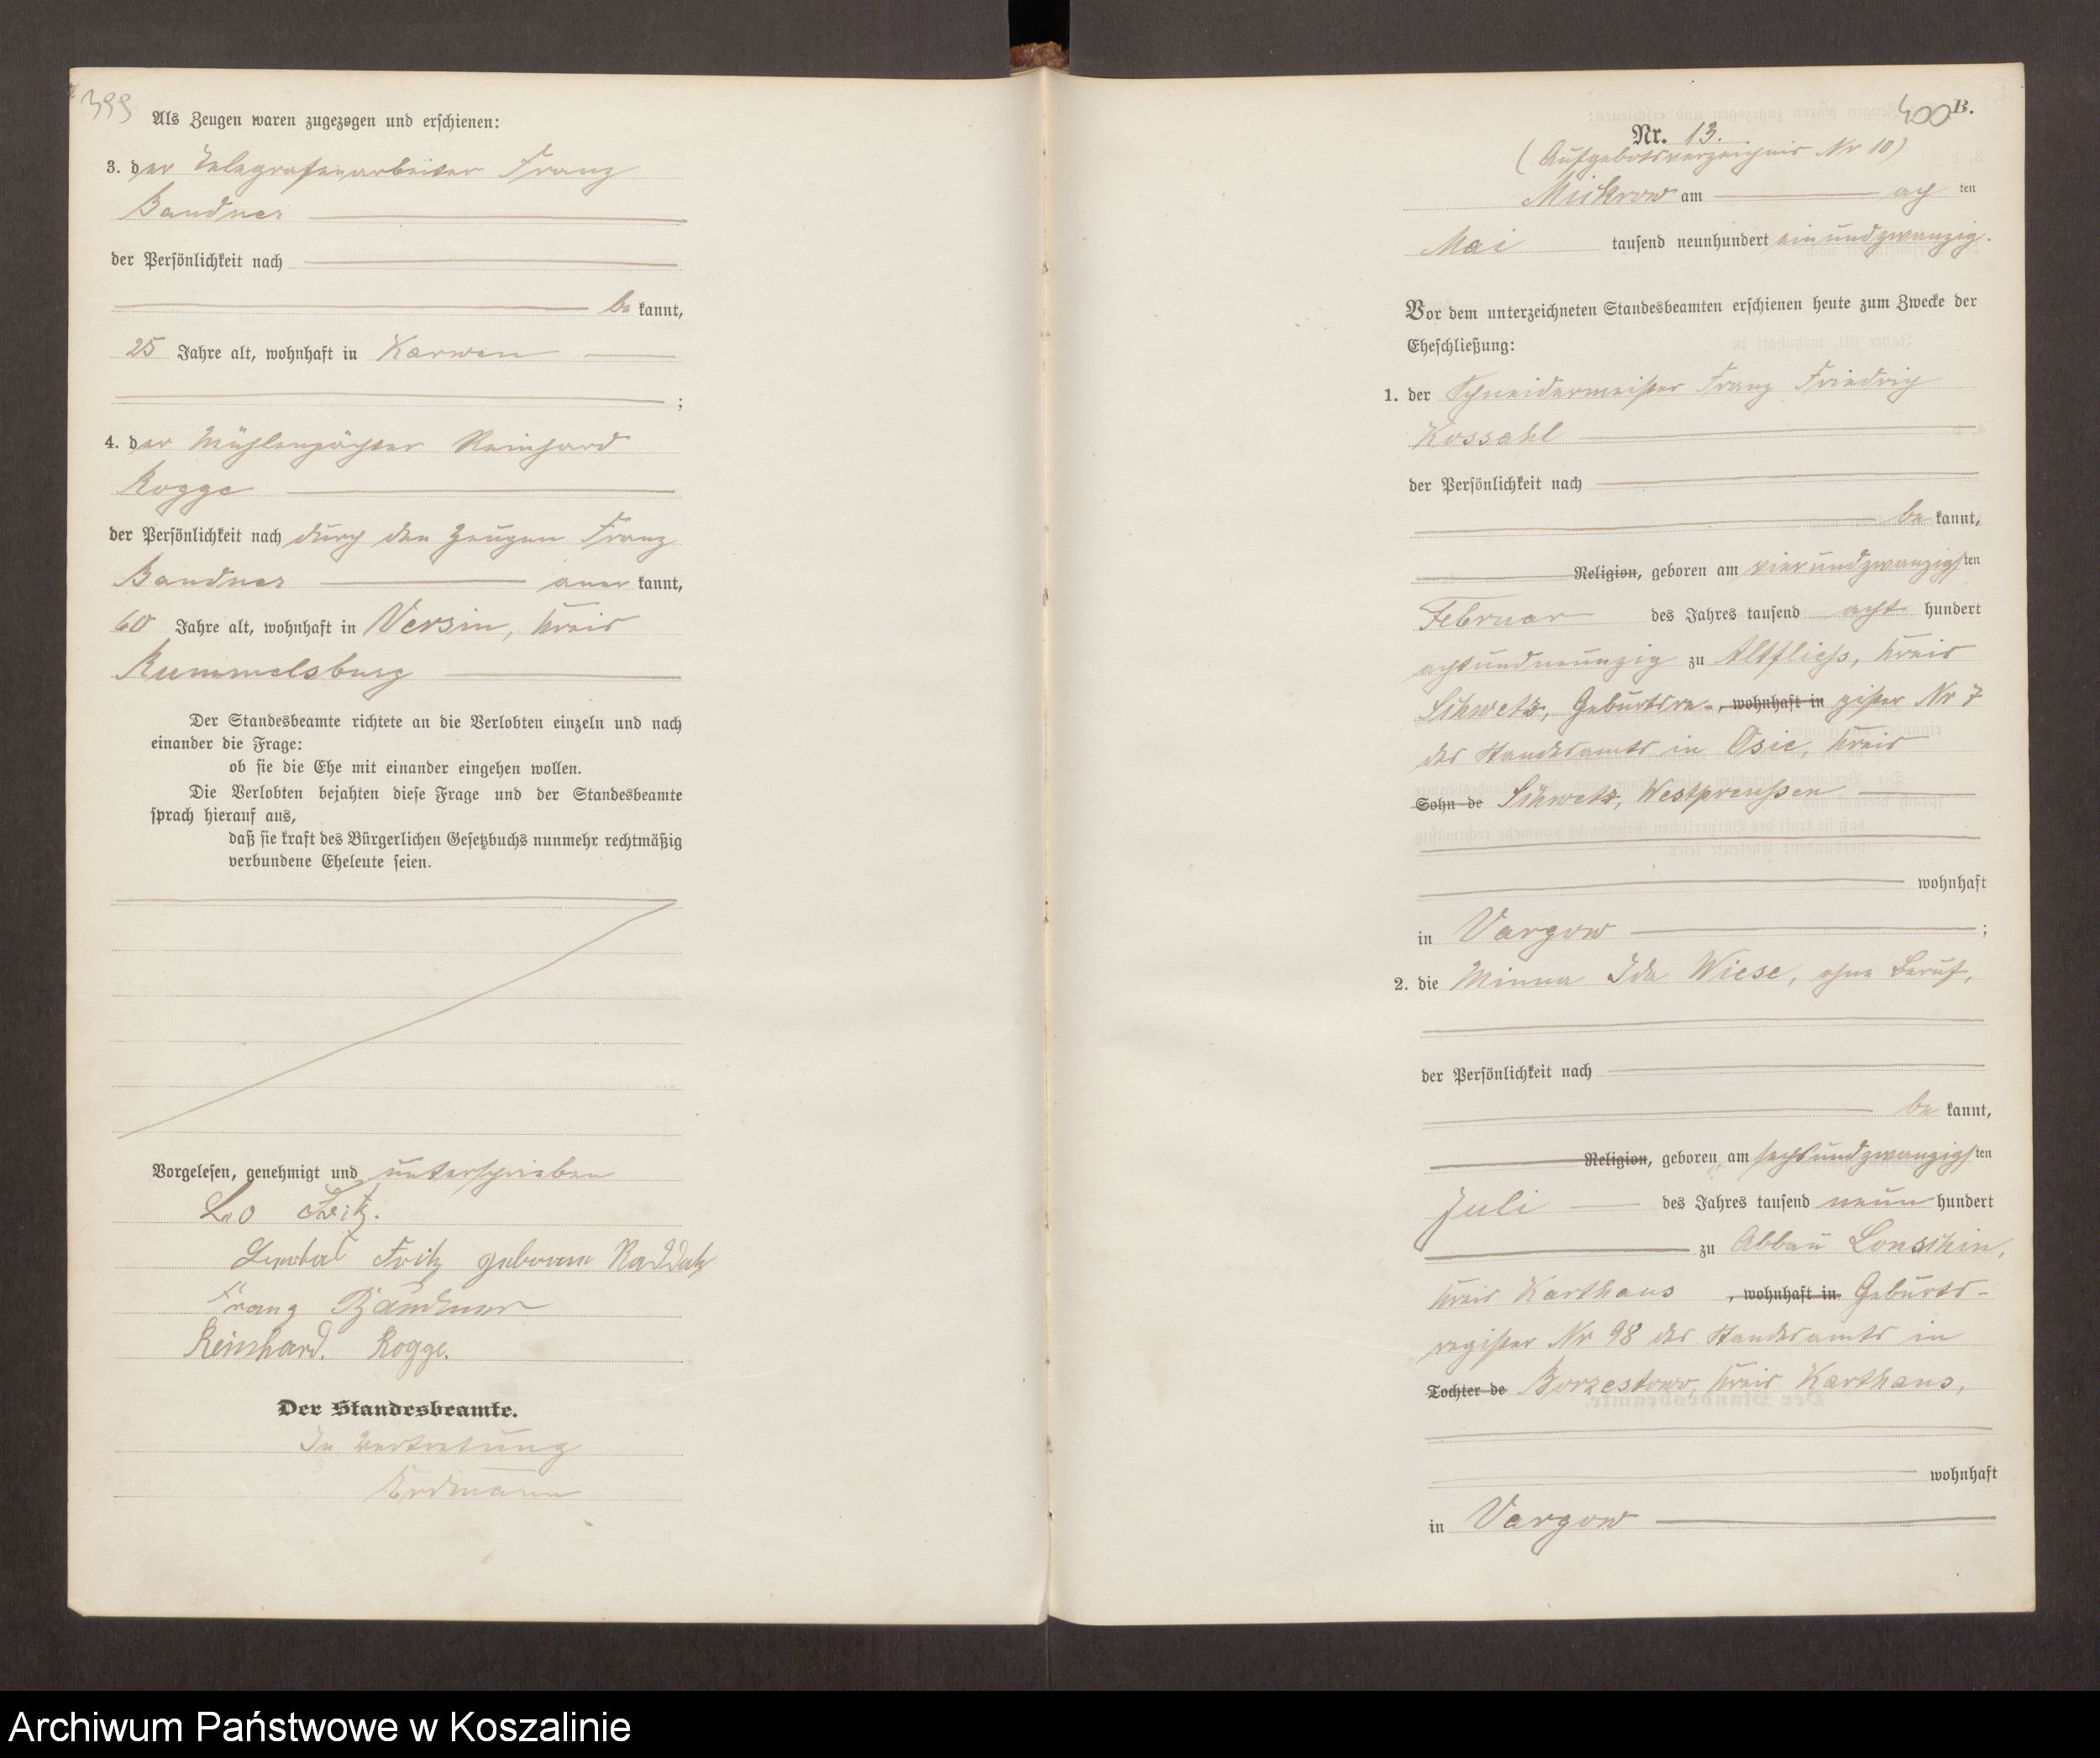 399
Als Zeugen waren zugezogen und erschienen:
3. der Telegrafenarbeiter Franz
Bandner
der Persönlichkeit nach
be kannt,
25 Jahre alt, wohnhaft in Karwen
;
4. der Mühlenpächter Reinhard
Rogge
der Persönlichkeit nach durch den Zeugen Franz
Bandner aner kannt,
60 Jahre alt, wohnhaft in Versin, Kreis
Rummelsburg
Der Standesbeamte richtete an die Verlobten einzeln und nach
einander die Frage:
ob sie die Ehe mit einander eingehen wollen.
Die Verlobten bejahten diese Frage und der Standesbeamte
sprach hierauf aus,
daß sie kraft des Bürgerlichen Gesetzbuchs nunmehr rechtmäßig
verbundene Eheleute seien.
Vorgelesen, genehmigt und unterschrieben
Leo Fritz.
Fritz geborene Raddatz
Franz Bandner
Reinhard. Rogge.
Der Standesbeamte.
In Vertretung
Erdmann
400 B.
Nr. 13.
(Aufgebotsverzeichnis Nr 10)
Mickrow am ach ten
Mai tausend neunhundert einundzwanzig.
Vor dem unterzeichneten Standesbeamten erschienen heute zum Zwecke der
Eheschließung:
1. der Schneidermeister Franz Friedrich
Kossahl
der Persönlichkeit nach
be kannt,
Religion, geboren am vierundzwanzigsten
Februar des Jahres tausend acht hundert
achtundneunzig zu Altfliess, Kreis
Schwetz, Geburtsre-, wohnhaft in gister Nr 7
des Standesamts in Osie, Kreis
Sohn de Schwetz, Westpreußen
wohnhaft
in Vargow ;
2. die Minna Ida Wiese, ohne Beruf,
der Persönlichkeit nach
be kannt,
Religion, geboren am sechsundzwanzigsten
Juli des Jahres tausend neun hundert
zu Abbau Lonschin,
Kreis Karthaus , wohnhaft in Geburts-
register Nr 98 des Standesamts in
Tochter de Borzestowo, Kreis Karthaus,
wohnhaft
in Vargow
Archiwum Państwowe w Koszalinie